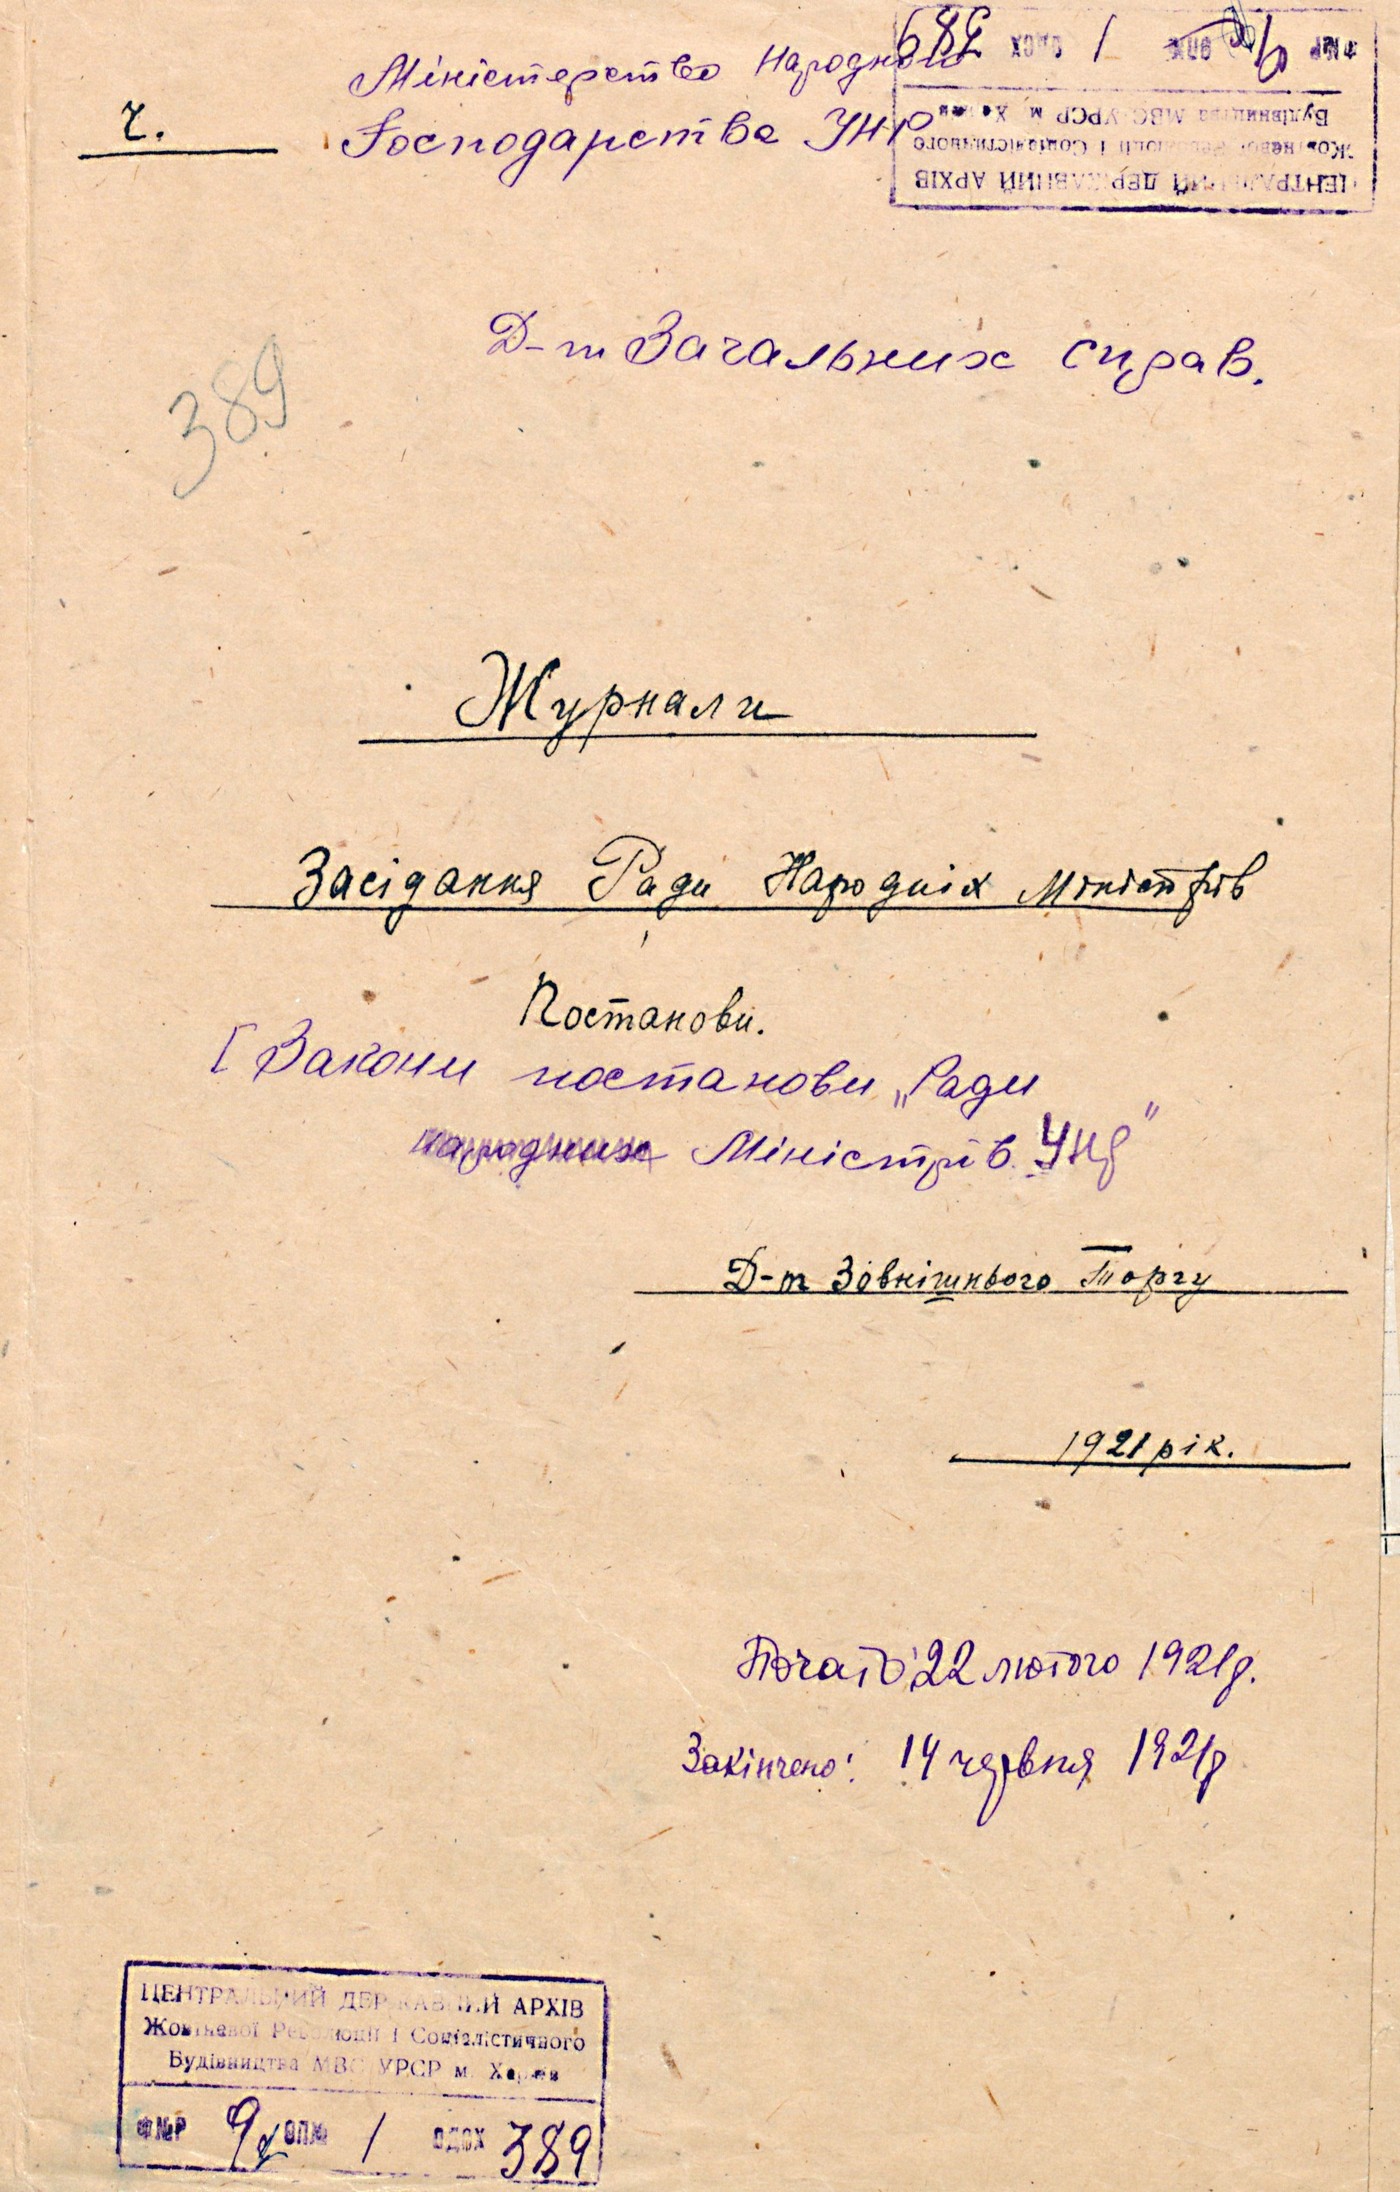 Міністерство Народного
Ч.
Господарства УНР
389
1
ЦЕНТРАЛЬНИЙ ДЕРЖАВНИЙ АРХІВ
Жовтневої Революції і Соціалістичного
Будівництва МВС УРСР м. Харків
Д-т Загальних справ.
389
Журнали
Засідання Ради Народніх Міністрів
Постанови.
[ Закони постанови „Ради
народних Міністрів УНР"
Д-т Зовнішнього Торгу
1921 рік.
Почато: 22 лютого 1921р.
Закінчено: 14 червня 1921р
ЦЕНТРАЛЬНИЙ ДЕРЖАВНИЙ АРХІВ
Жовтневої Революції і Соціалістичного
Будівництва МВС УРСР м. Харків
Ф№Р ОП№ 1 ОДЗХ 389